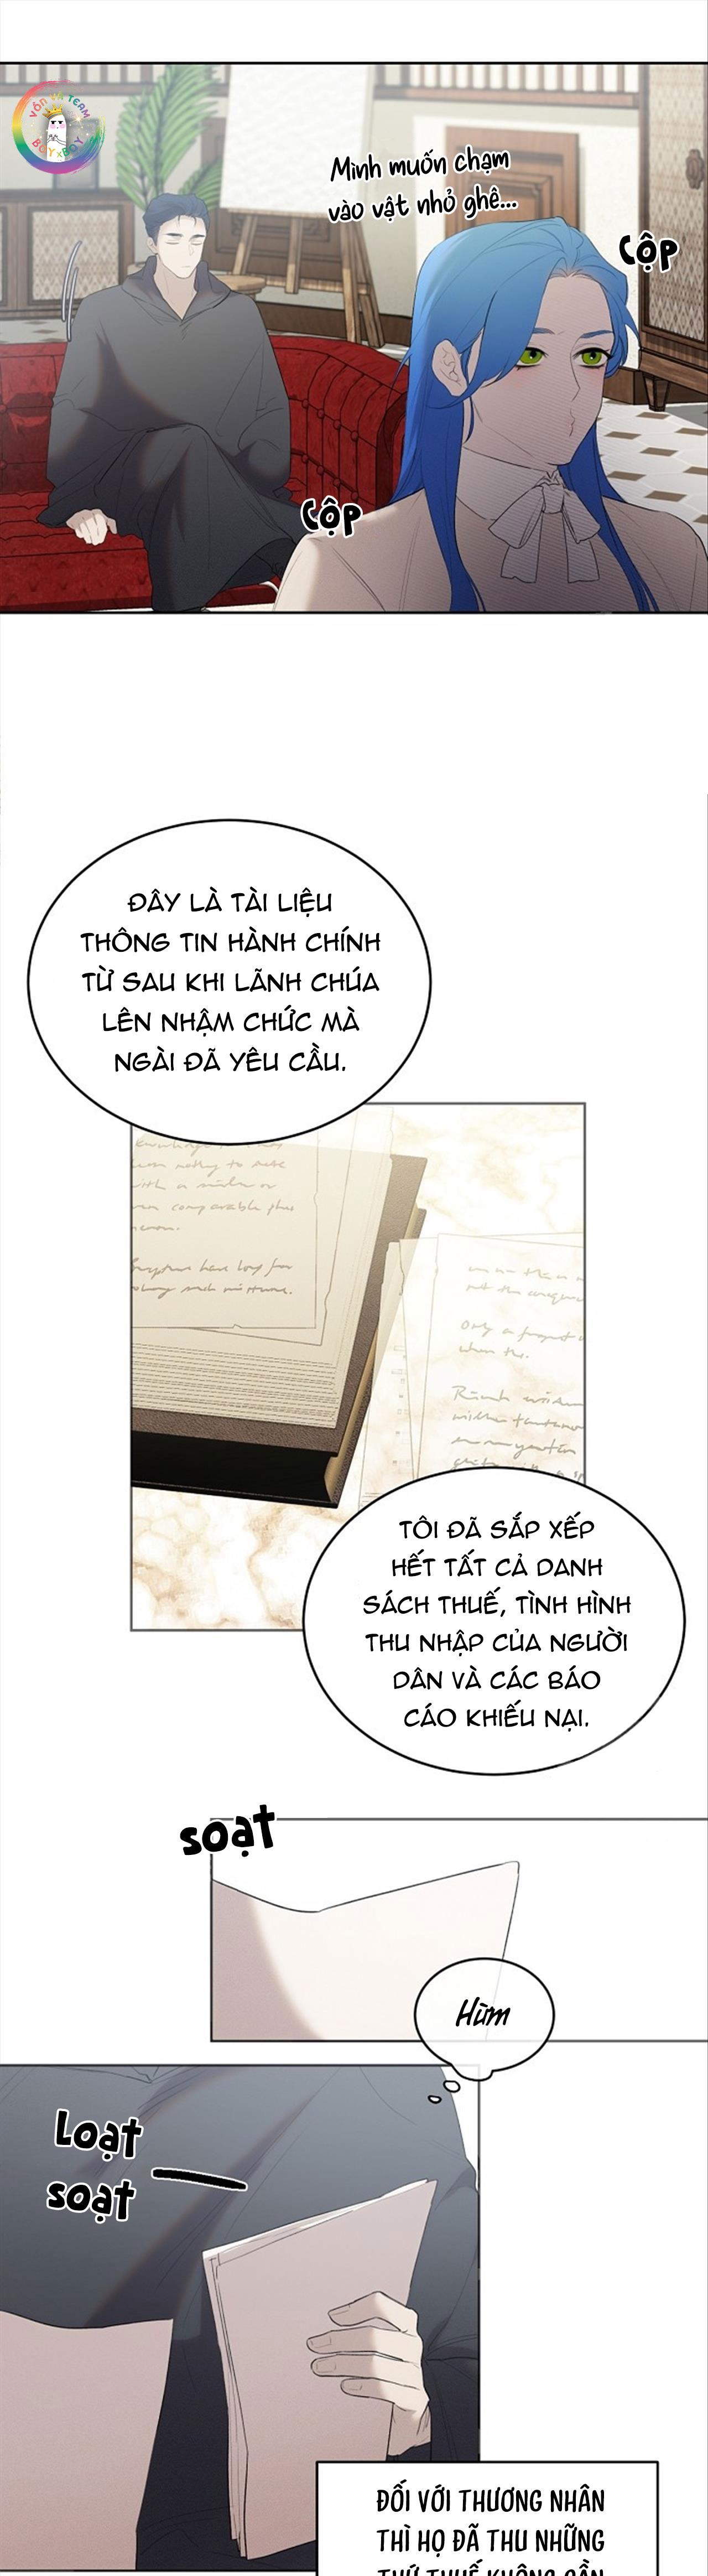 VỐN LÀ TEAM
BOY x BOY
Mình muốn chạm
vào vật nhỏ ghê...
cộp
cộp
ĐÂY LÀ TÀI LIỆU
THÔNG TIN HÀNH CHÍNH
TỪ SAU KHI LÃNH CHÚA
LÊN NHẬM CHỨC MÀ
NGÀI ĐÃ YÊU CẦU.
with a
comparable
have long from
such mixture.
Only a
when the.
TÔI ĐÃ SẮP XẾP
HẾT TẤT CẢ DANH
SÁCH THUẾ, TÌNH HÌNH
THU NHẬP CỦA NGƯỜI
DÂN VÀ CÁC BÁO
CÁO KHIẾU NẠI.
soạt
Hừm
Loạt
soạt
ĐỐI VỚI THƯƠNG NHÂN
THÌ HỌ ĐÃ THU NHỮNG
THỨ THUẾ KHÔNG CẦN